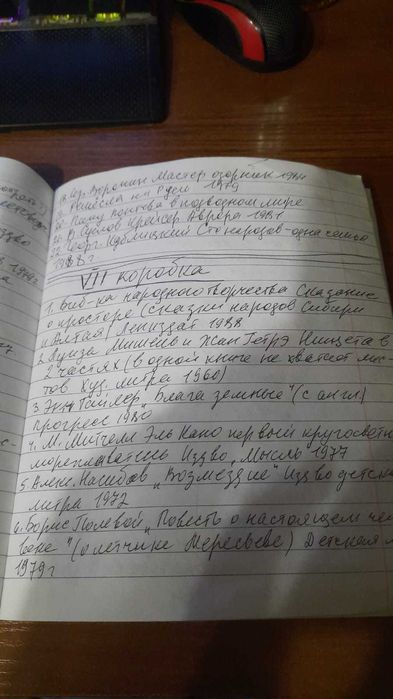 18. Юр. Воронин Мастер озорник 1981
19. Ремёсла на Руси 1979
20. в подводном мире
21. В. Суслов Крейсер Аврора 1981
22. Георг. Кублицкий Сто народов - одна семья
1988 г
VII коробка
1. Биб-ка народного творчества Сказание
о просторе (сказки народов Сибири
и Алтая) Лениздат 1988
2 Луиза Мишель и Жан Гетрэ Нищета в
2 частях (в одной книге не хватает лис-
тов Худ. литра 1960)
3 Тайлер „Блага земные" (с англ)
прогресс 1980
4. М. Митчелл Эль Кано первый кругосветн
мореплаватель Изд во „Мысль" 1977
5 Алекс. Насибов „Возмездие" Изд во детска
литра 1972
6. Борис Полевой „Повесть о настоящем чел
веке" (о летчике Мересьеве) Детская л
1979 г